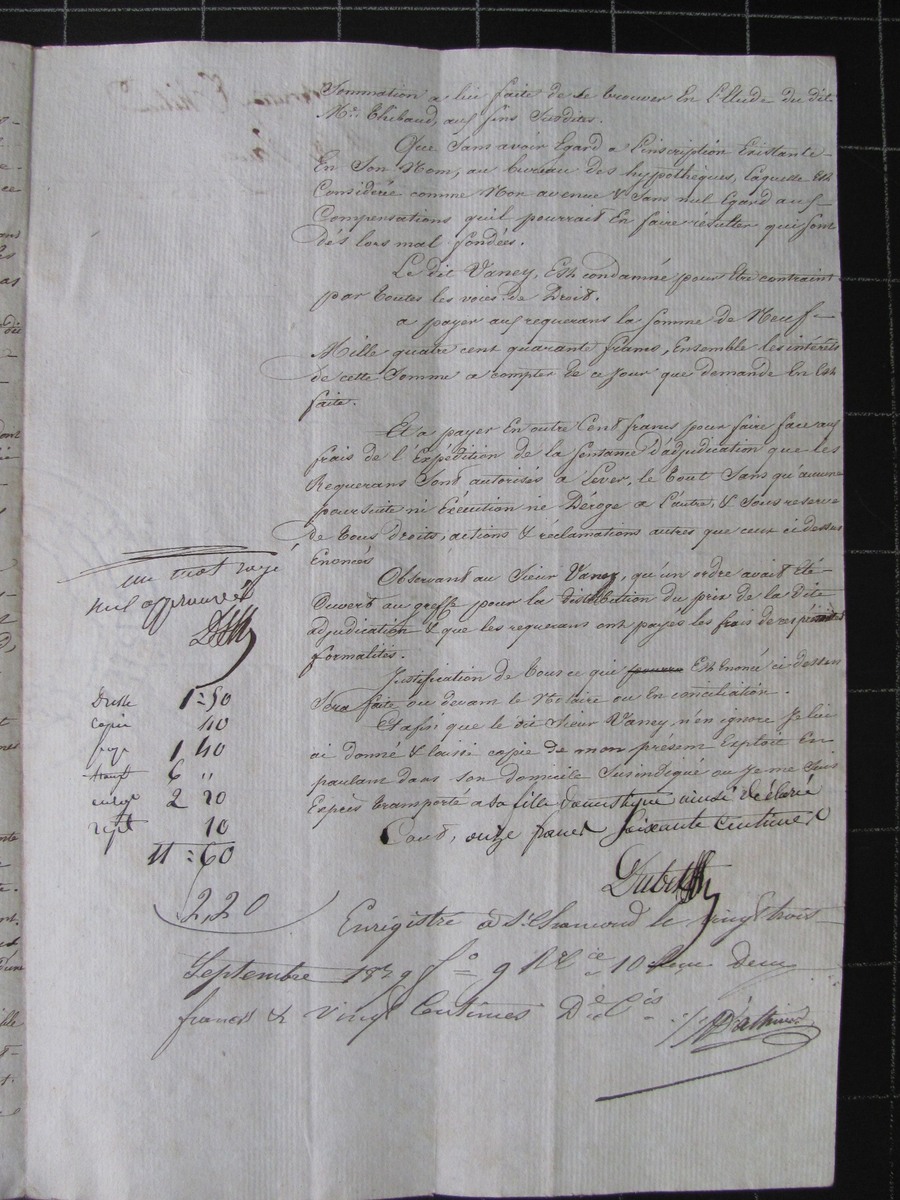 Sommation a lui faite de se trouver En L'Etude du dit
Me Thibaud, aux fins Susdites.
Que Sans avoir Egard a L'inscription Existante
En Son Nom, au bureau des hypotheques, Laquelle Est
Considérée comme Non avenue & Sans nul Egard aux
Compensations qu'il pourrait En faire résulter qui sont
dès lors mal fondées.
Le dit Vaney, Est condamné pour être contraint
par toutes les voies de Droit.
a payer aux requerans la Somme de Neuf
Mille quatre cent quarante francs, Ensemble les intérêts
de cette Somme a compter de ce Jour que demande En Est
faite.
Et a payer En outre Cent francs pour faire face aux
frais de l'Expédition de la Sentance d'adjudication que les
Requerans Sont autorisés a Lever, le tout Sans qu'aucune
poursuite ni Exécution ne Déroge a l'autre, & Sous reserve
de tous droits, actions & réclamations autres que ceux ci dessus
Enoncés
Observant au Sieur Vaney, qu'un ordre avait été
Ouvert au greffe pour la distribution du prix de la dite
adjudication & que les requerans ont payés les frais de ces
formalités.
Justification de tous ce qui Est Enoncé ci dessus
Sera faite ou devant le Notaire ou En conciliation.
Et afin que le dit Sieur Vaney, n'en ignore Je lui
ai donné & laissé copie de mon présent Exploit En
parlant dans son domicile Susindiqué ou Je me Suis
Exprès transporté a sa fille domestique ainsi déclaré
Cout, onze francs Soixante Centimes
un mot rayé
nul approuvé
1=50
copie 40
1 40
6 "
2 20
10
11=60
2,20
Enregistré à St Chamond le vingt trois
Septembre 1839 fo 9 Ro Ce 10 Reçu Deux
francs & vingt Centimes Dé Cis